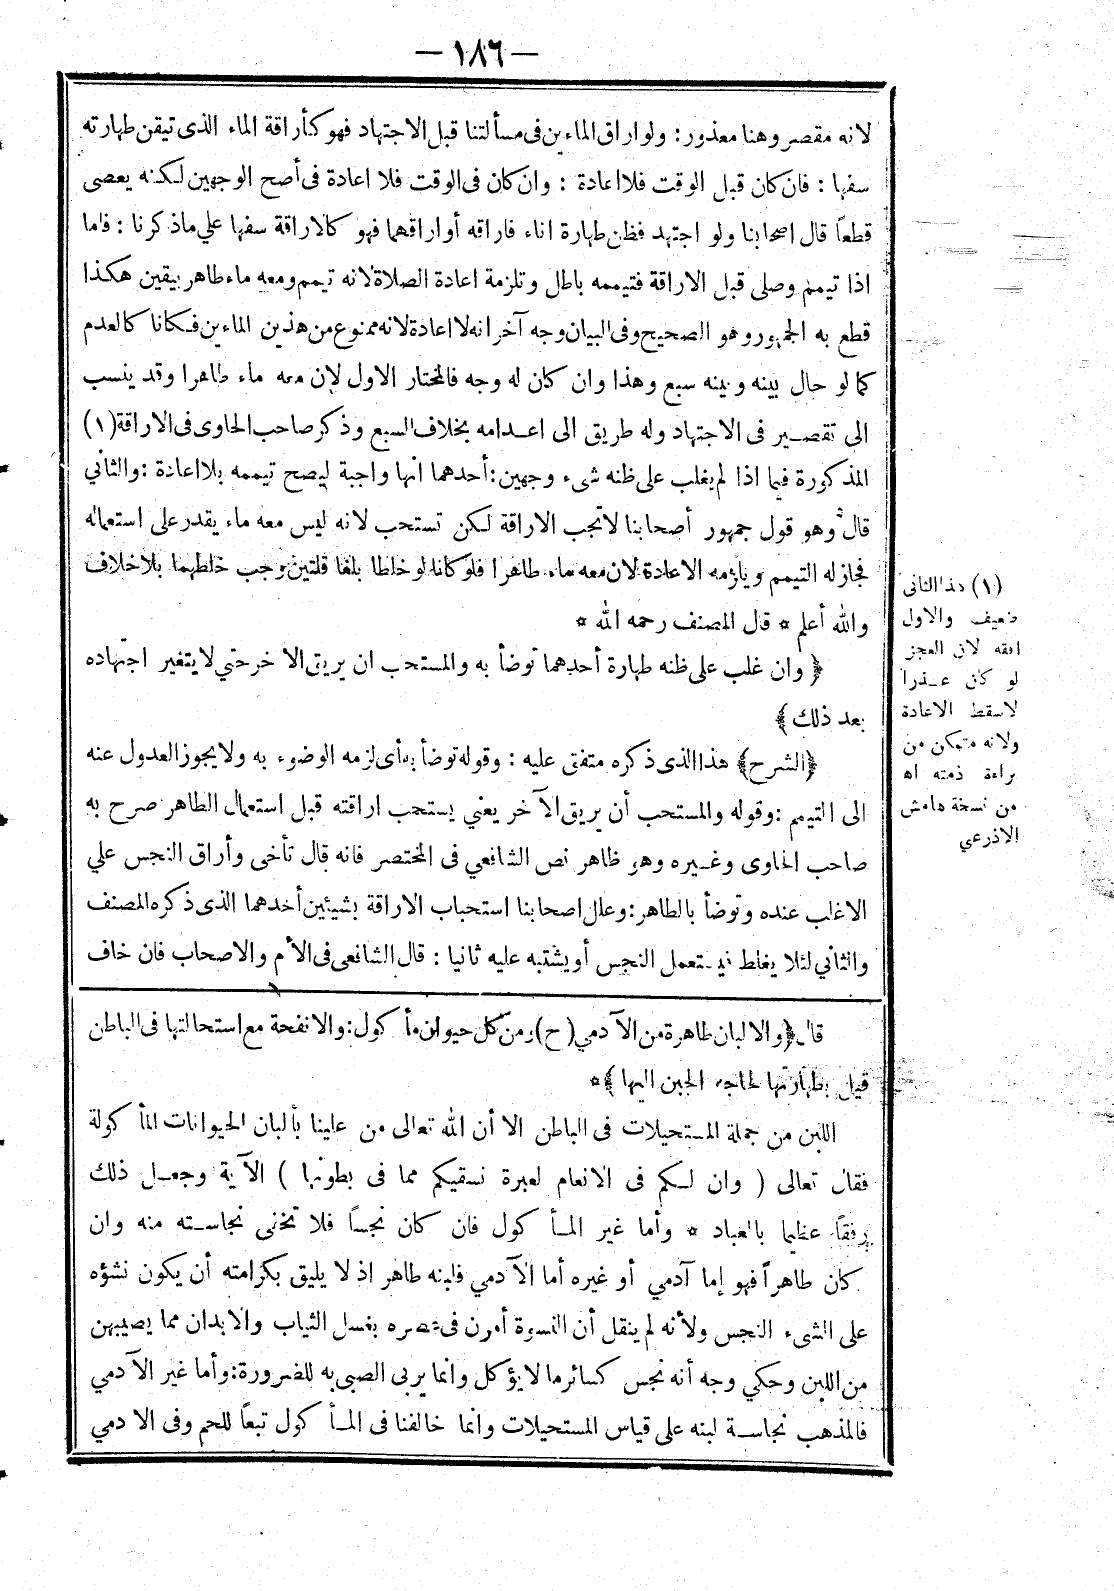 — ١٨٦ —
لانه مقصر وهنا معذور: ولو اراق الماءين فى مسألتنا قبل الاجتهاد فهو كأراقة الماء الذى تيقن طهارته
سفها : فان كان قبل الوقت فلا اعادة : وان كان فى الوقت فلا اعادة فى أصح الوجهين لكنه يعصى
قطعاً قال اصحابنا ولو اجتهد فظن طهارة اناء فاراقه أو اراقهما فهو كالاراقة سفها علي ماذكرنا : فاما
اذا تيمم وصلى قبل الاراقة فتيممه باطل وتلزمة اعادة الصلاة لانه تيمم ومعه ماء طاهر بيقين هكذا
قطع به الجمهور وهو الصحيح وفى البيان وجه آخر انه لا اعادة لانه ممنوع من هذين الماءين فكانا كالعدم
كما لو حال بينه وبينه سبع وهذا وان كان له وجه فالمختار الاول لان معه ماء طاهرا وقد ينسب
الى تقصير فى الاجتهاد وله طريق الى اعدامه بخلاف السبع وذكر صاحب الحاوى فى الاراقة (١)
المذكورة فيما اذا لم يغلب على ظنه شىء وجهين: أحدهما انها واجبة ليصح تيممه بلا اعادة : والثاني
قال وهو قول جمهور أصحابنا لا تجب الاراقة لكن تستحب لانه ليس معه ماء يقدر على استعماله
فجاز له التيمم ويلزمه الاعادة لان معه ماء طاهرا فلو كانا لو خلطا بلغا قلتين وجب خلطهما بلا خلاف
والله أعلم * قال المصنف رحمه الله *
﴿ وان غلب على ظنه طهارة أحدهما توضأ به والمستحب ان يريق الا خر حتي لا يتغير اجتهاده
بعد ذلك ﴾
﴿الشرح﴾ هذا الذى ذكره متفق عليه : وقوله توضأ به أى لزمه الوضوء به ولا يجوز العدول عنه
الى التيمم : وقوله والمستحب أن يريق الآخر يعني يستحب اراقته قبل استعمال الطاهر صرح به
صاحب الحاوى وغيره وهو ظاهر نص الشافعي فى المختصر فانه قال تأخى وأراق النجس علي
الاغلب عنده وتوضأ بالطاهر: وعلل اصحابنا استحباب الاراقة بشيئين أحدهما الذى ذكره المصنف
والثاني لئلا يغلط فيستعمل النجس أو يشتبه عليه ثانيا : قال الشافعى فى الأم والاصحاب فان خاف
(١) هذا الثانى
ضعيف والاول
افقه لان العجز
لو كان عذرا
لاسقط الاعادة
ولانه متمكن من
براءة ذمته اه
من نسخة هامش
الاذرعي
قال ﴿والالبان طاهرة من الآدمي (ح) ومن كل حيوان مأكول: والانفحة مع استحالتها فى الباطن
قيل بطهارتها لحاجة الجبن اليها ﴾*
اللبن من جملة المستحيلات فى الباطن الا أن الله تعالى من علينا بألبان الحيوانات المأكولة
فقال تعالى ( وان لكم فى الانعام لعبرة نسقيكم مما فى بطونها ) الآية وجعل ذلك
رفقاً عظيما بالعباد * وأما غير المأكول فان كان نجساً فلا تخفى نجاسته منه وان
كان طاهراً فهو إما آدمي أو غيره أما الآدمي فلبنه طاهر اذ لا يليق بكرامته أن يكون نشؤه
على الشىء النجس ولأنه لم ينقل أن النسوة أمرن فى عصره بغسل الثياب والابدان مما يصيبهن
من اللبن وحكي وجه أنه نجس كسائر ما لا يؤكل وانما يربى الصبى به للضرورة: وأما غير الآدمي
فالمذهب نجاسة لبنه على قياس المستحيلات وانما خالفنا فى المأكول تبعاً للحم وفى الا دمي